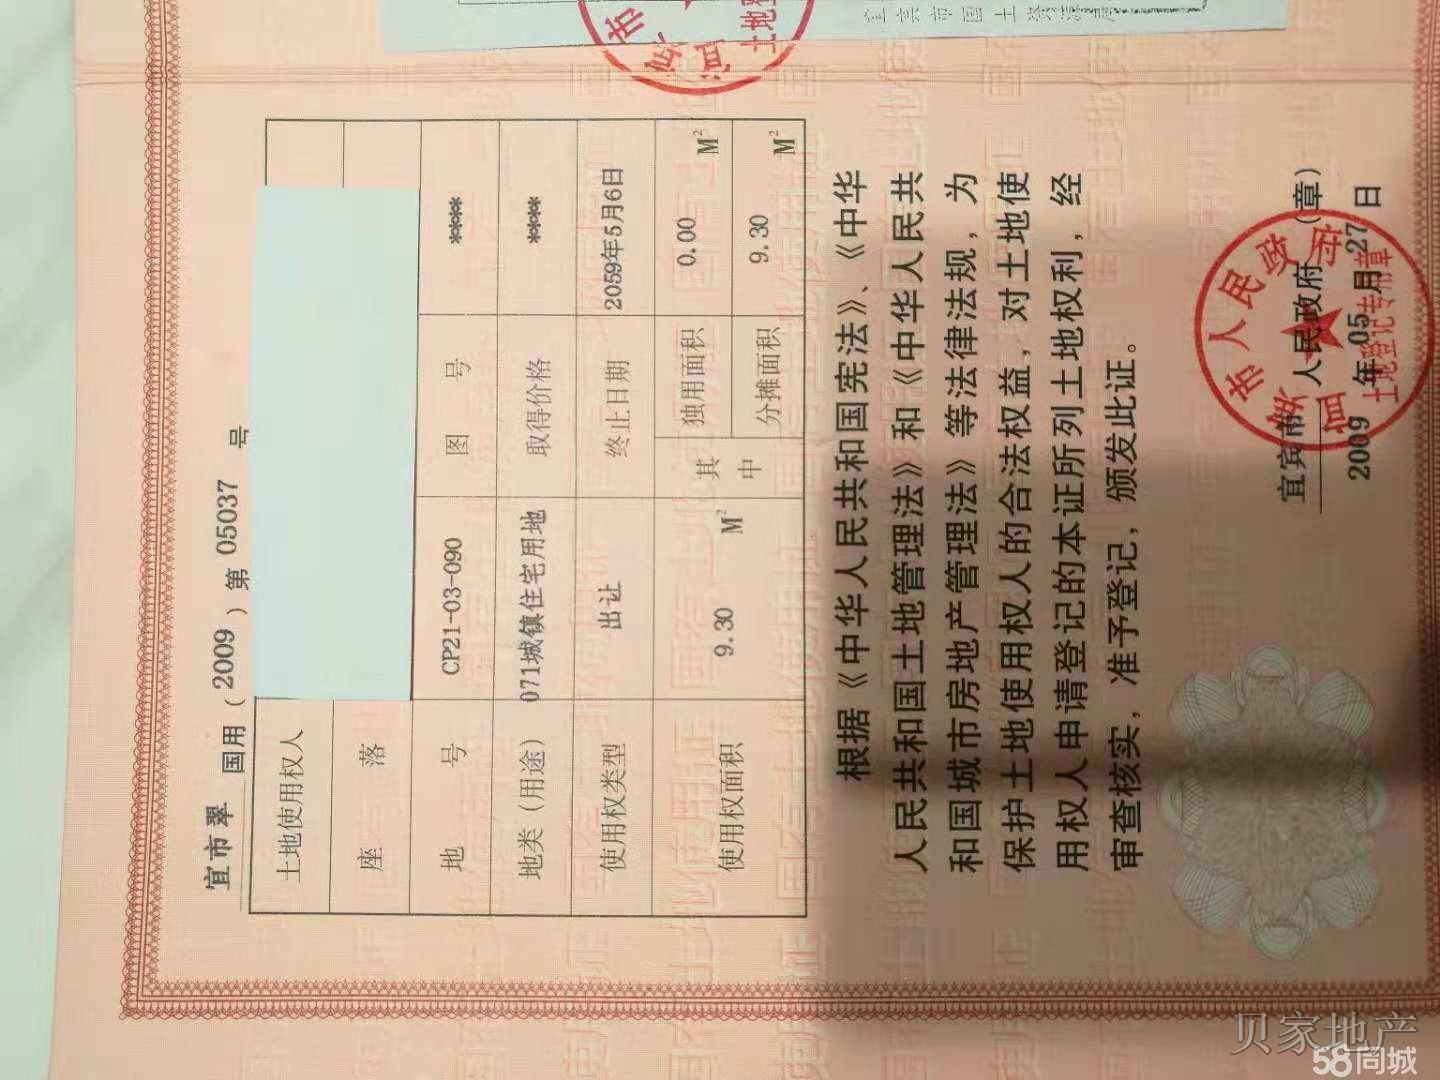 宜市翠 国用（2009）第 05037 号
土地使用权人
座 落
地 号 CP21-03-090 图 号 ****
地类（用途） 071城镇住宅用地 取得价格 ****
使用权类型 出让 终止日期 2059年5月6日
使用权面积 9.30 M² 其中 独用面积 0.00 M²
分摊面积 9.30 M²
根据《中华人民共和国宪法》、《中华
人民共和国土地管理法》和《中华人民共
和国城市房地产管理法》等法律法规，为
保护土地使用权人的合法权益，对土地使
用权人申请登记的本证所列土地权利，经
审查核实，准予登记，颁发此证。
宜宾市 人民政府（章）
2009 年 05 月 27 日
土地登记专用章
宜宾市国土资源局
贝家地产
58同城